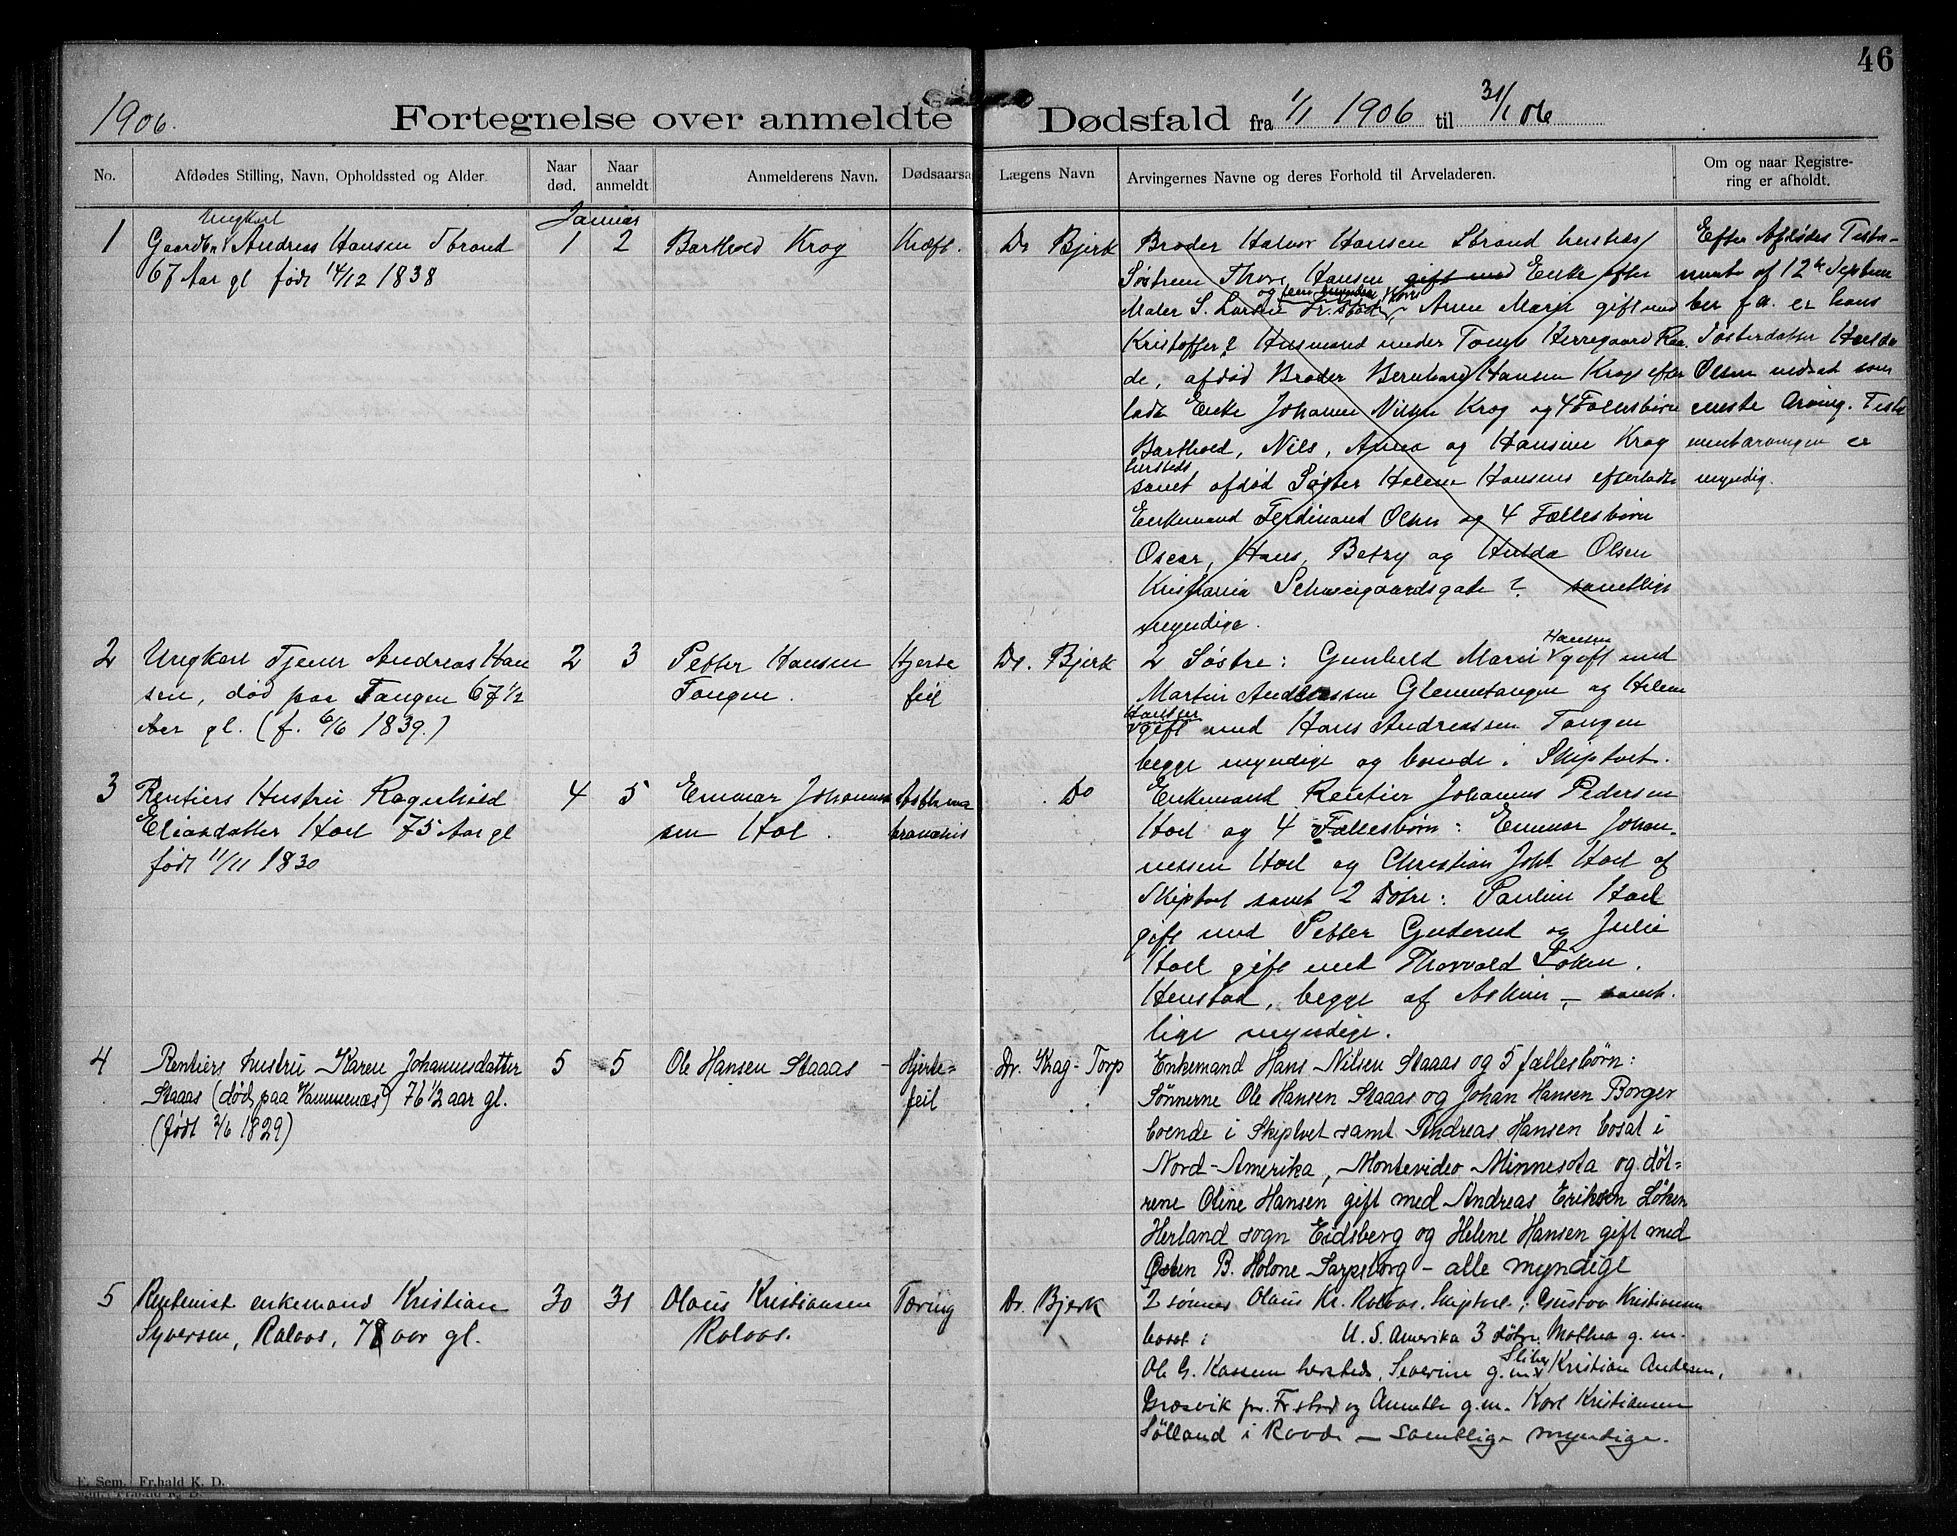 46
1906.
Fortegnelse over anmeldte Dødsfald fra 1/1 1906 til 31/1 06
No.
Afdødes Stilling, Navn, Opholdssted og Alder.
Naar død.
Naar anmeldt
Anmelderens Navn.
Dødsaarsa
Lægens Navn
Arvingernes Navne og deres Forhold til Arveladeren.
Om og naar Registre-
ring er afholdt.
Januar
1
Ungkarl
Gaardbr. Andreas Hansen Strand
67 Aar gl født 14/12 1838
1
2
Barthold Krog
Kræft.
Dr Bjerk
Broder Halvor Hansen Strand hersteds
Søstrene Thore Hansen gift med Enke efter
Maler S. Larsen Fr.stad, Anne Marie gift med
Kristoffer ? Husmand under Tomb Herregaard Raa
de, afdød Broder Bernhard Hansen Krogs efter
ladte Enke Johanne Nilsen Krog og 4 Fællesbørn
Barthold, Nils, Anna og Hansine Krog
hersteds
samt afdød Søster Helene Hansens efterladte
Enkemand Ferdinand Olsen og 4 Fællesbørn
Oscar, Hans, Betzy og Hulda Olsen
Kristiania Schweigaardsgate ? samtlige
myndige.
Efter Afdødes Testa-
mente af 12te Septem
ber f.a. er hans
Søsterdatter Hulda
Olsen indsat som
eneste Arving. Testa
mentarvingen er
myndig.
2
Ungkarl Tjener Andreas Han
sen, død paa Tangen 67 1/2
Aar gl. (f. 6/6 1839.)
2
3
Petter Hansen
Tangen.
Hjerte
feil
Dr. Bjerk
Hansen
2 Søstre: Gunhild Marie gift med
Martin Andersen Glennetangen og Helene
Hansen
gift med Hans Andreassen Tangen
begge myndige og boende i Skiptvet.
3
Rentiers Hustru Ragnhild
Eliasdatter Hoel 75 Aar gl
født 11/11 1830
4
5
Emmar Johannes
sen Hol.
Asthma
bronchit
Do
Enkemand Rentier Johannes Pedersen
Hoel og 4 Fællesbørn: Emmar Johan-
nessen Hoel og Christian Joh. Hoel af
Skiptvet samt 2 Døtre: Pauline Hoel
gift med Petter Guderud og Julie
Hoel gift med Thorvald Løken.
Henstad, begge af Askim, — samt-
lige myndige.
4
Rentiers hustru Karen Johannesdatter
Staaas (død paa Vammenæs) 76 1/2 aar gl.
(født 2/6 1829)
5
5
Ole Hansen Staaas
Hjerte-
feil
Dr. Krag-Torp
Enkemand Hans Nilsen Staaas og 5 fællesbørn:
Sønnerne Ole Hansen Staaas og Johan Hansen Borger
boende i Skiptvet samt Andreas Hansen bosat i
Nord-Amerika, Montevideo Minnesota og døt-
rene Oline Hansen gift med Andreas Eriksen Løken
Herland sogn Eidsberg og Helene Hansen gift med
Østen B. Holone Sarpsborg – alle myndige
5
Rentenist enkemand Kristian
Syversen, Rolaas, 78 aar gl.
30
31
Olaus Kristiansen
Rolaas.
Tæring
Dr. Bjerk
2 sønner Olaus Kr. Rolaas, Skiptvet; Gustav Kristiansen
bosat i U. S. Amerika 3 døtre, Mathea g. m.
Ole G. Kassem hersteds, Severine g. m. Kristian Andersen,
Græsvik pr. Fr.stad og Annette g. m. Karl Kristiansen
Sølland i Raade — samtlige myndige.
E. Sem, Fr.hald K. D.